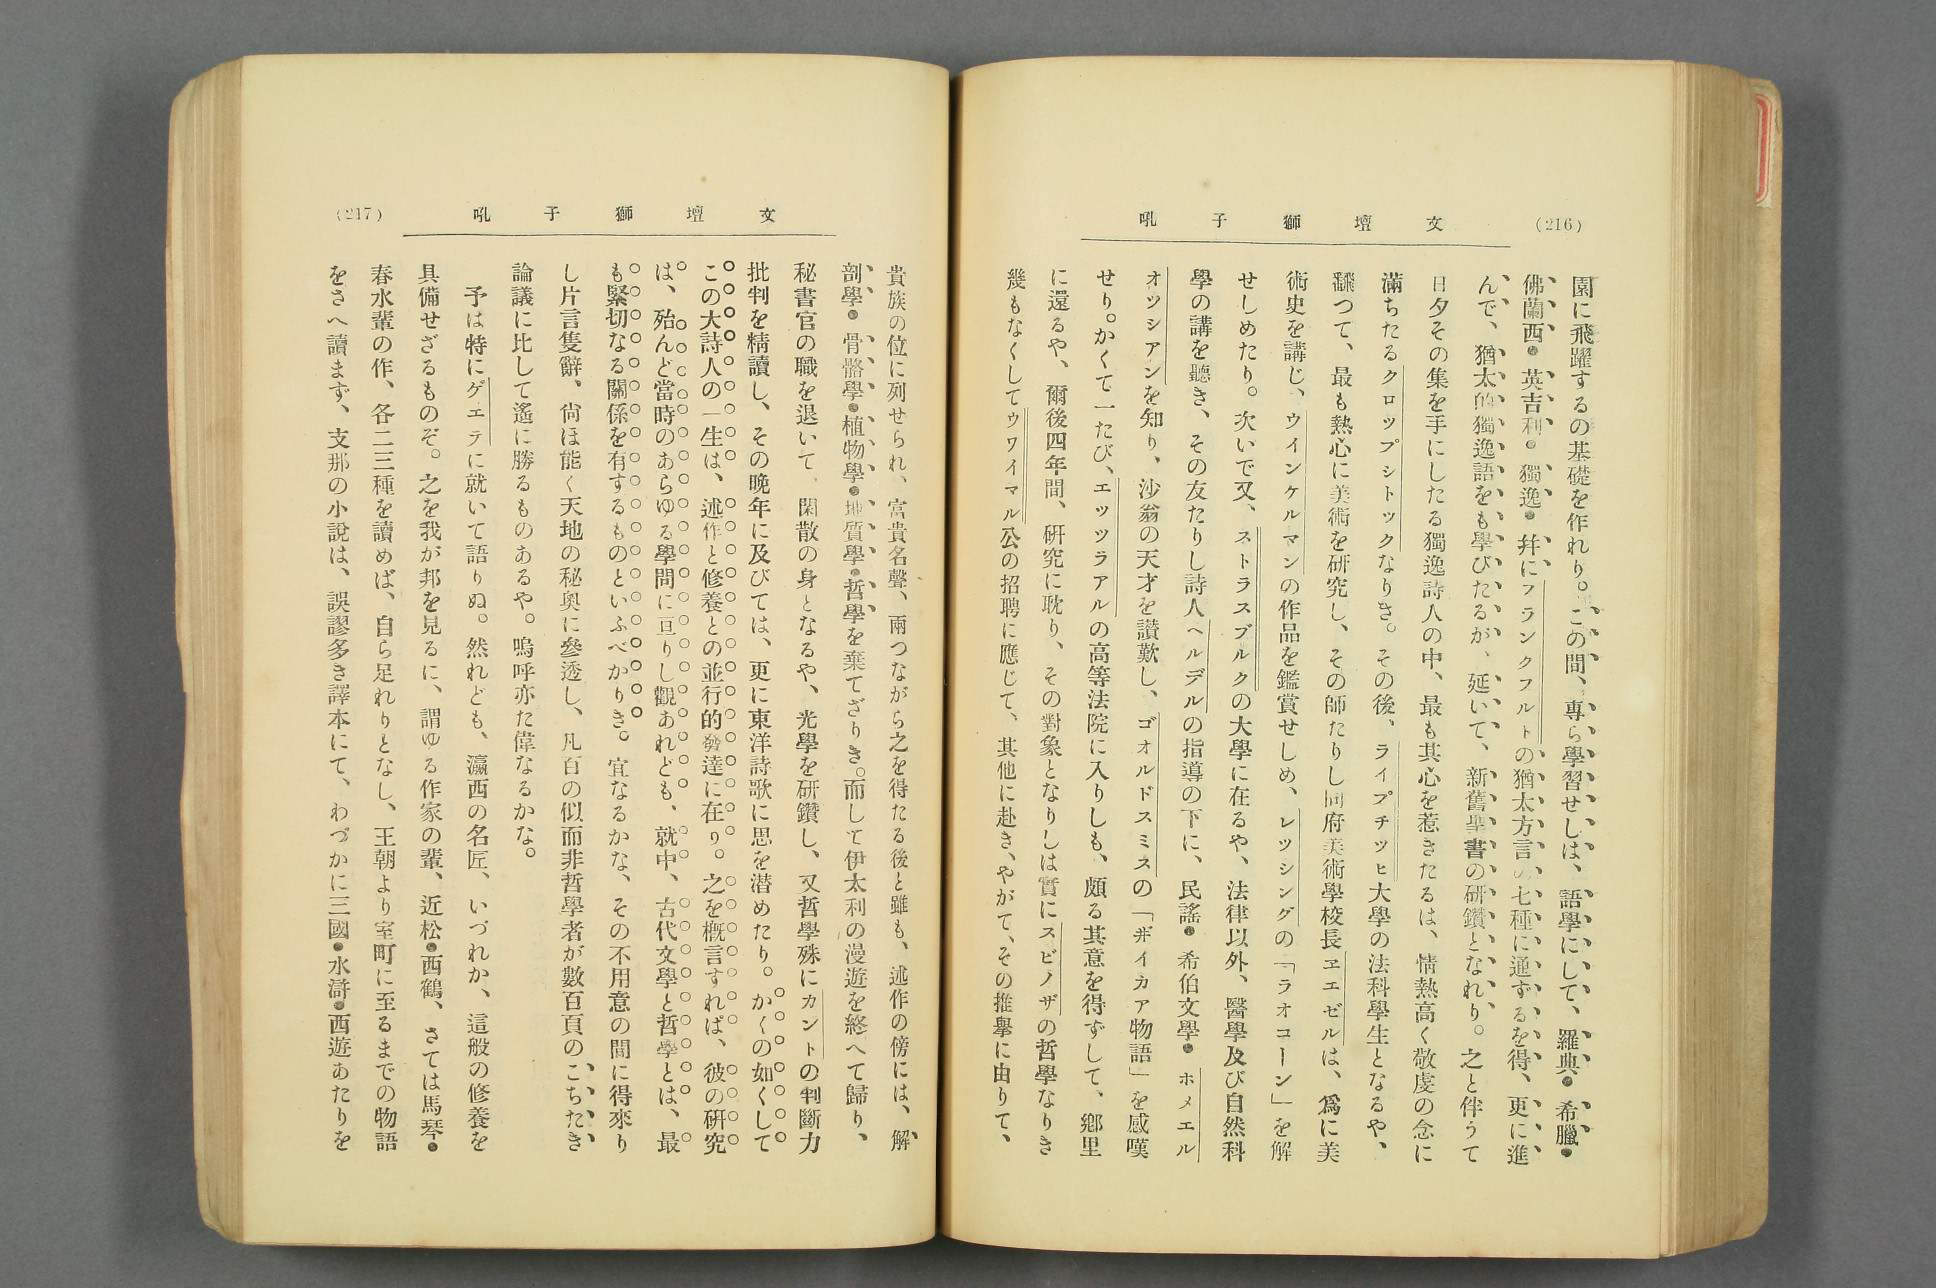 (216)
文壇獅子吼
園に飛躍するの基礎を作れり。この間、專ら學習せしは、語學にして、羅典・希臘・
佛蘭西・英吉利・獨逸・幷にフランクフルトの猶太方言の七種に通ずるを得、更に進
んで、猶太的獨逸語をも學びたるが、延いて、新舊聖書の研鑽となれり。之と伴うて
日夕その集を手にしたる獨逸詩人の中、最も其心を惹きたるは、情熱高く敬虔の念に
滿ちたるクロップシトックなりき。その後、ライプチッヒ大學の法科學生となるや、
飜つて、最も熱心に美術を研究し、その師たりし同府美術學校長ヱエゼルは、爲に美
術史を講じ、ウインケルマンの作品を鑑賞せしめ、レッシングの「ラオコーン」を解
せしめたり。次いで又、ストラスブルクの大學に在るや、法律以外、醫學及び自然科
學の講を聽き、その友たりし詩人ヘルデルの指導の下に、民謠・希伯文學・ホメエル
オッシアンを知り、沙翁の天才を讃歎し、ゴオルドスミスの「ヰイカア物語」を感嘆
せり。かくて一たび、エッツラアルの高等法院に入りしも、頗る其意を得ずして、鄕里
に還るや、爾後四年間、硏究に耽り、その對象となりしは實にスピノザの哲學なりき
幾もなくしてワワイマル公の招聘に應じて、其他に赴き、やがて、その推擧に由りて、
文壇獅子吼
(217)
貴族の位に列せられ、富貴名聲、兩つながら之を得たる後と雖も、述作の傍には、解
剖學・骨骼學・植物學・地質學・哲學を棄てざりき。而して伊太利の漫遊を終へて歸り、
秘書官の職を退いて、閑散の身となるや、光學を研鑽し、又哲學殊にカントの判斷力
批判を精讀し、その晩年に及びては、更に東洋詩歌に思を潜めたり。かくの如くして
この大詩人の一生は、述作と修養との並行的發達に在り。之を槪言すれば、彼の硏究
は、殆んど當時のあらゆる學問に亘りし觀あれども、就中、古代文學と哲學とは、最
も緊切なる關係を有するものといふべかりき。宜なるかな、その不用意の間に得來り
し片言隻辭、尙ほ能く天地の秘奧に參透し、凡百の似而非哲學者が數百頁のこちたき
論議に比して遙に勝るものあるや。嗚呼亦た偉なるかな。
予は特にゲエテに就いて語りぬ。然れども、瀛西の名匠、いづれか、這般の修養を
具備せざるものぞ。之を我が邦を見るに、謂ゆる作家の輩、近松・西鶴、さては馬琴・
春水輩の作、各二三種を讀めば、自ら足れりとなし、王朝より室町に至るまでの物語
をさへ讀まず、支那の小說は、誤謬多き譯本にて、わづかに三國・水滸・西遊あたりを